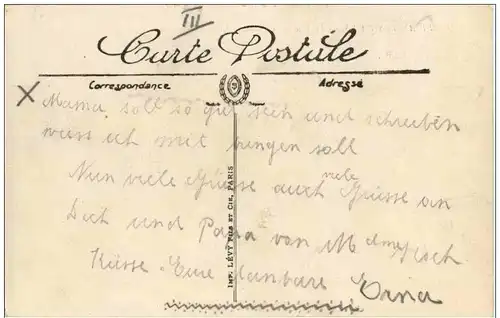 III
Carte Postale
Correspondance
Adresse
X Mama, soll so gut sein und schreiben
was ich mit bringen soll
Nun viele Grüsse auch viele Grüsse an
Dich und Papa von Mdme
Küsse Eure dankbare Erna
IMP. LÉVY FILS ET CIE, PARIS